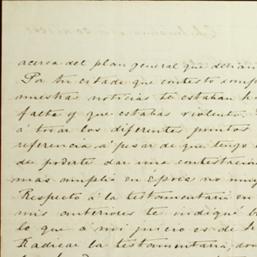 acerca del plan general que debian
Por tu citada que contesto comp
nuestras noticias te estaban h
falta y que estabas violento.
á tocar los diferentes puntos
referencia á pesar de que tengo
de poderte dar una contestacion
mas amplia en Epoca no muy
Respecto á la testamentaria en
mis anteriores te indiqué
lo que á mi juicio es de h
Radicar la testamentaria don